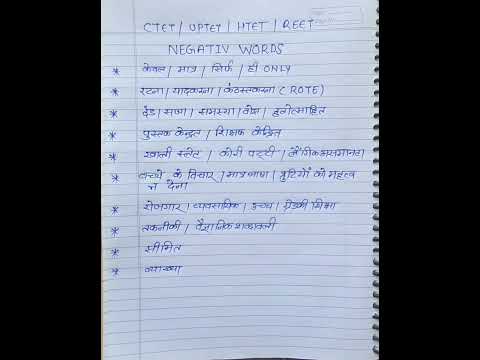 CTET | UPTET | HTET | REET
NEGATIV WORDS
* केवल / मात्र / सिर्फ / ही ONLY
* रटना / यादकरना / कंठस्तकरना (ROTE)
* दंड / सजा / समस्या / दोष / हतोत्साहित
* पुस्तक केन्द्रित / शिक्षक केन्द्रित
* खाली स्लेट / कोरी पट्टी / लैंगिकअसमानता
* बच्चों के विचार / मात्रभाषा / त्रुटियों को महत्व
न देना
* रोजगार / व्यवसायिक / उच्च / ग्रेडकी शिक्षा
* तकनीकी / वैज्ञानिक शब्दावली
* सीमित
* व्याख्या